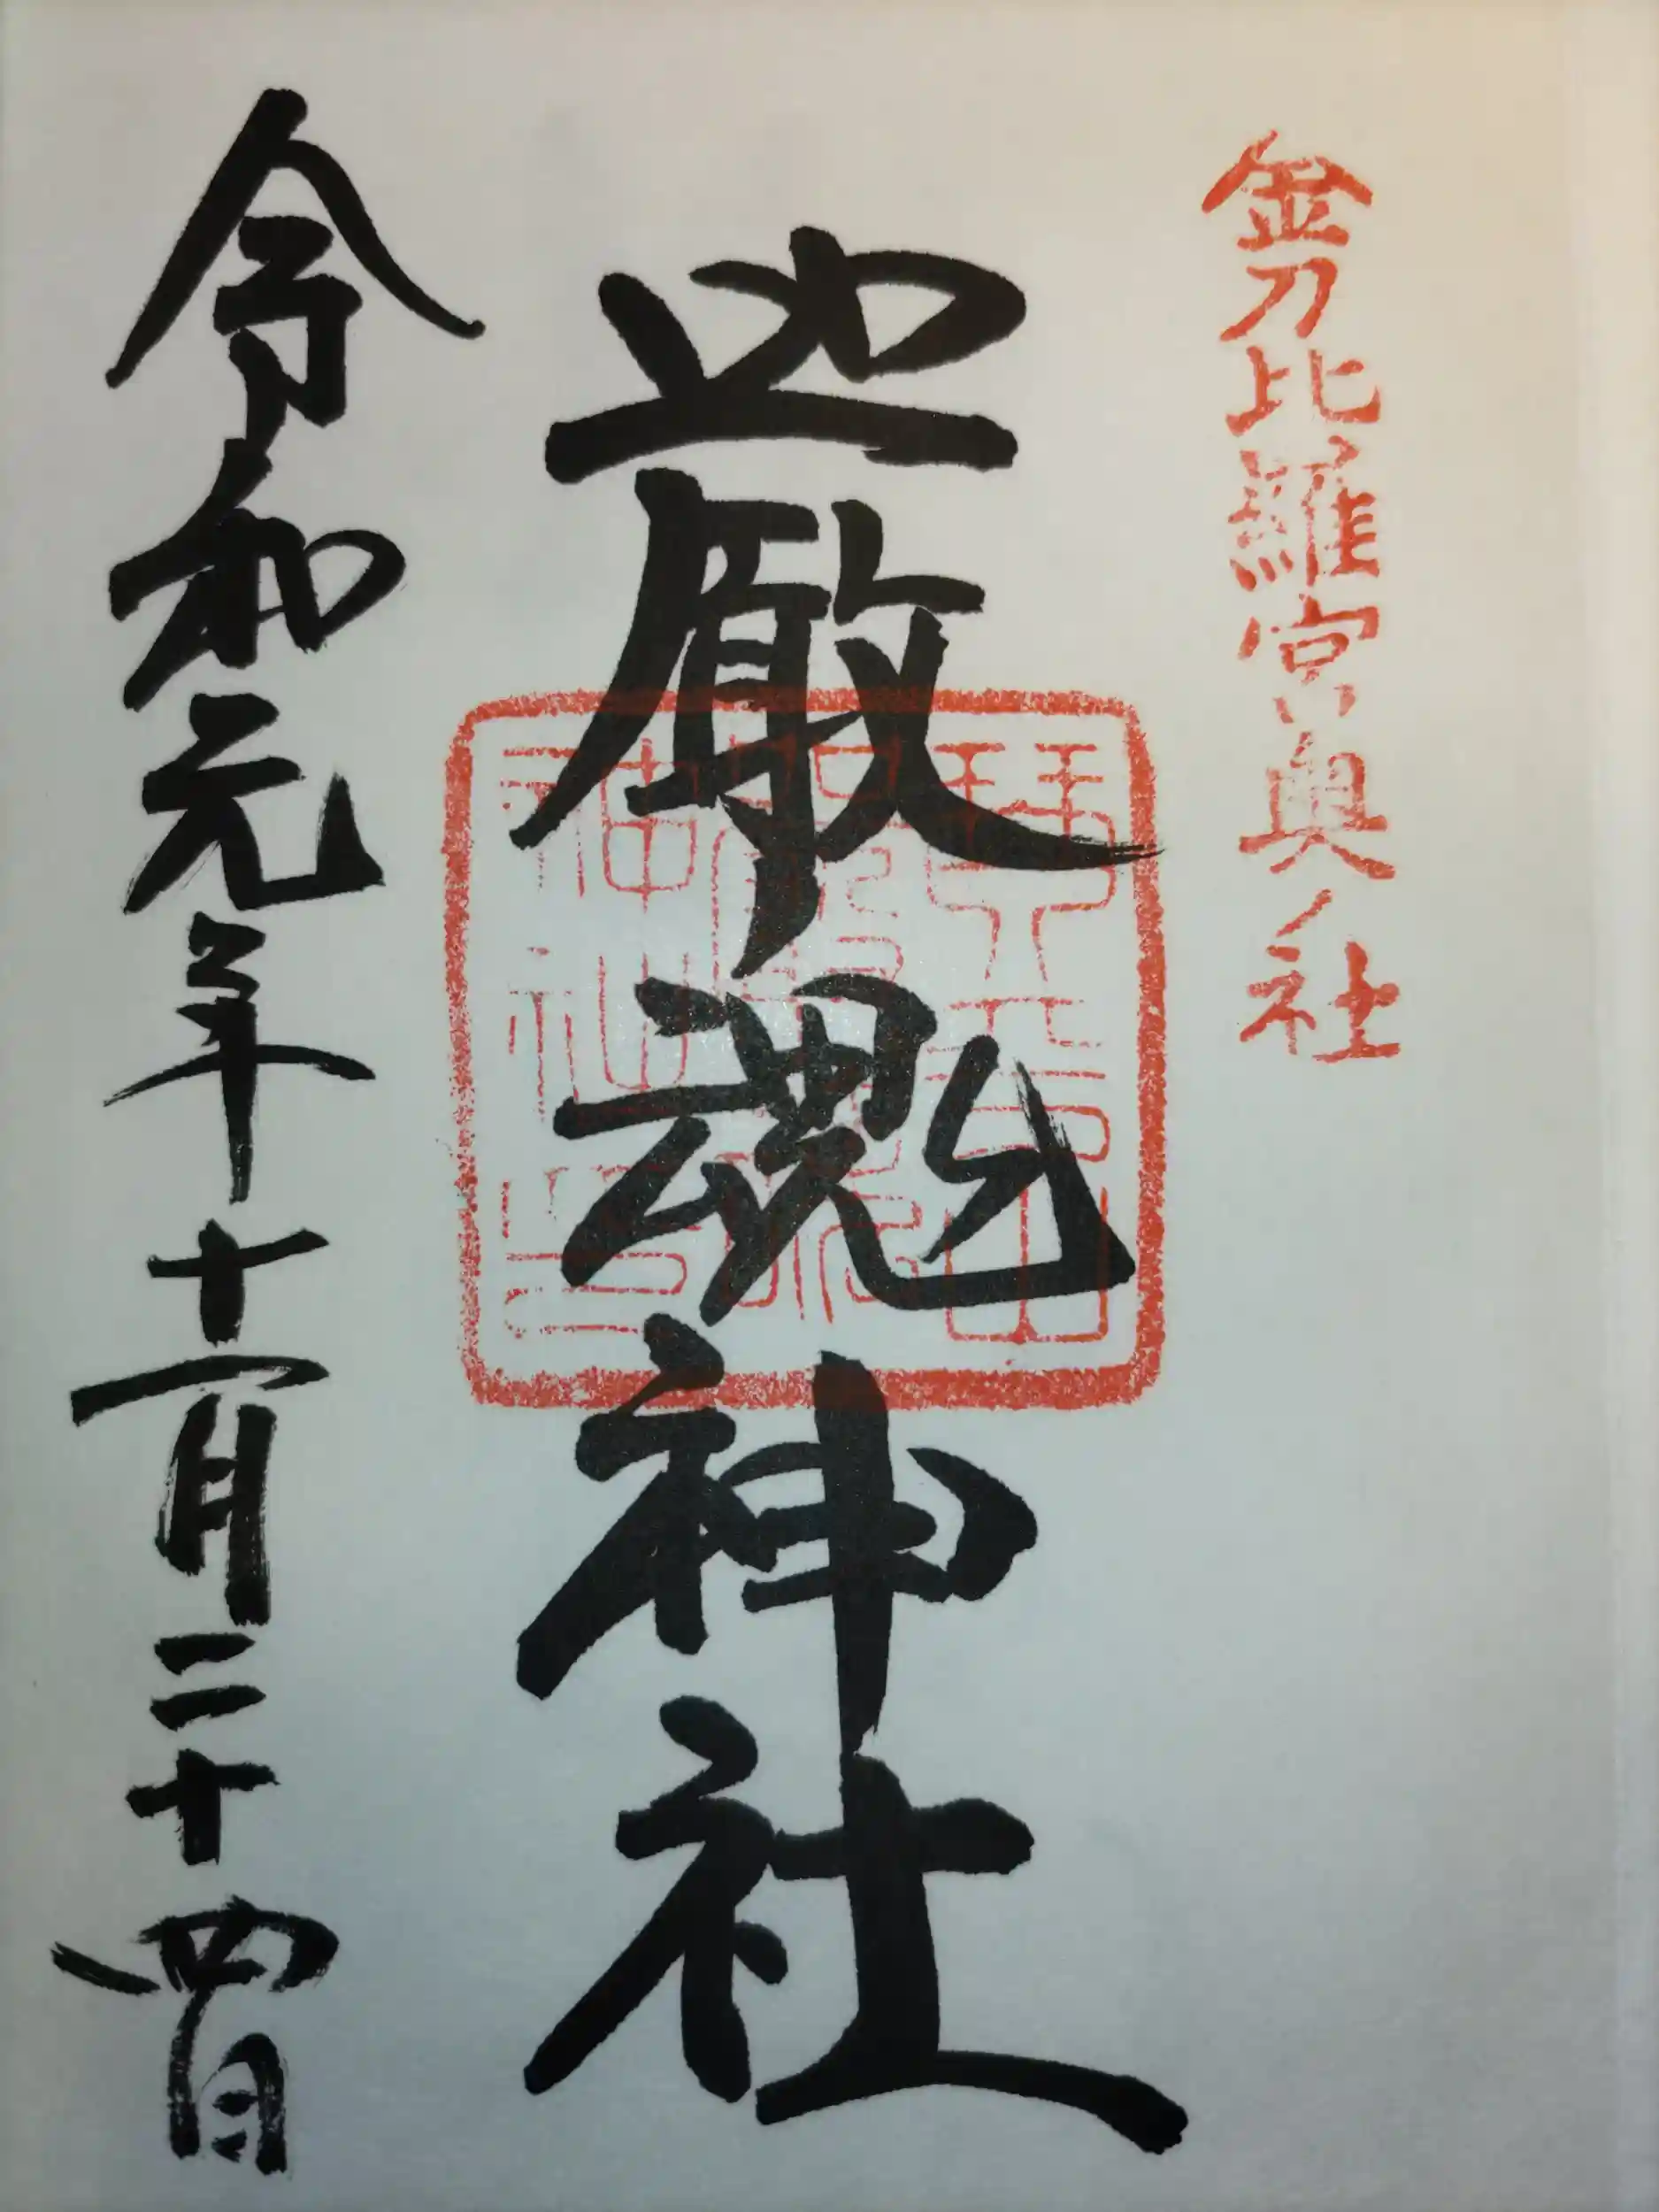 金刀比羅宮奥ノ社
厳魂神社
令和元年十一月二十四日